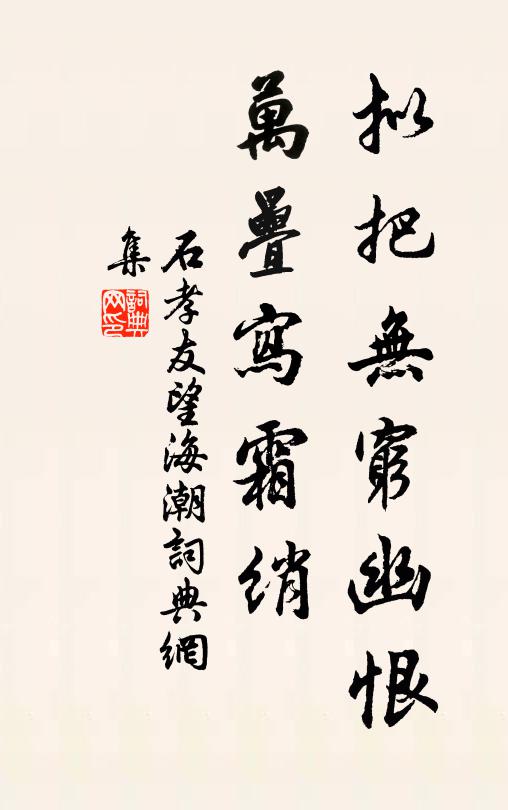 拟把無窮幽恨
萬疊寫霜綃
石孝友望海潮詞典網
集
詞典
网印